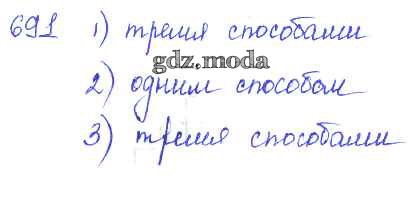 691 1) тремя способами
gdz.moda
2) одним способом
3) тремя способами